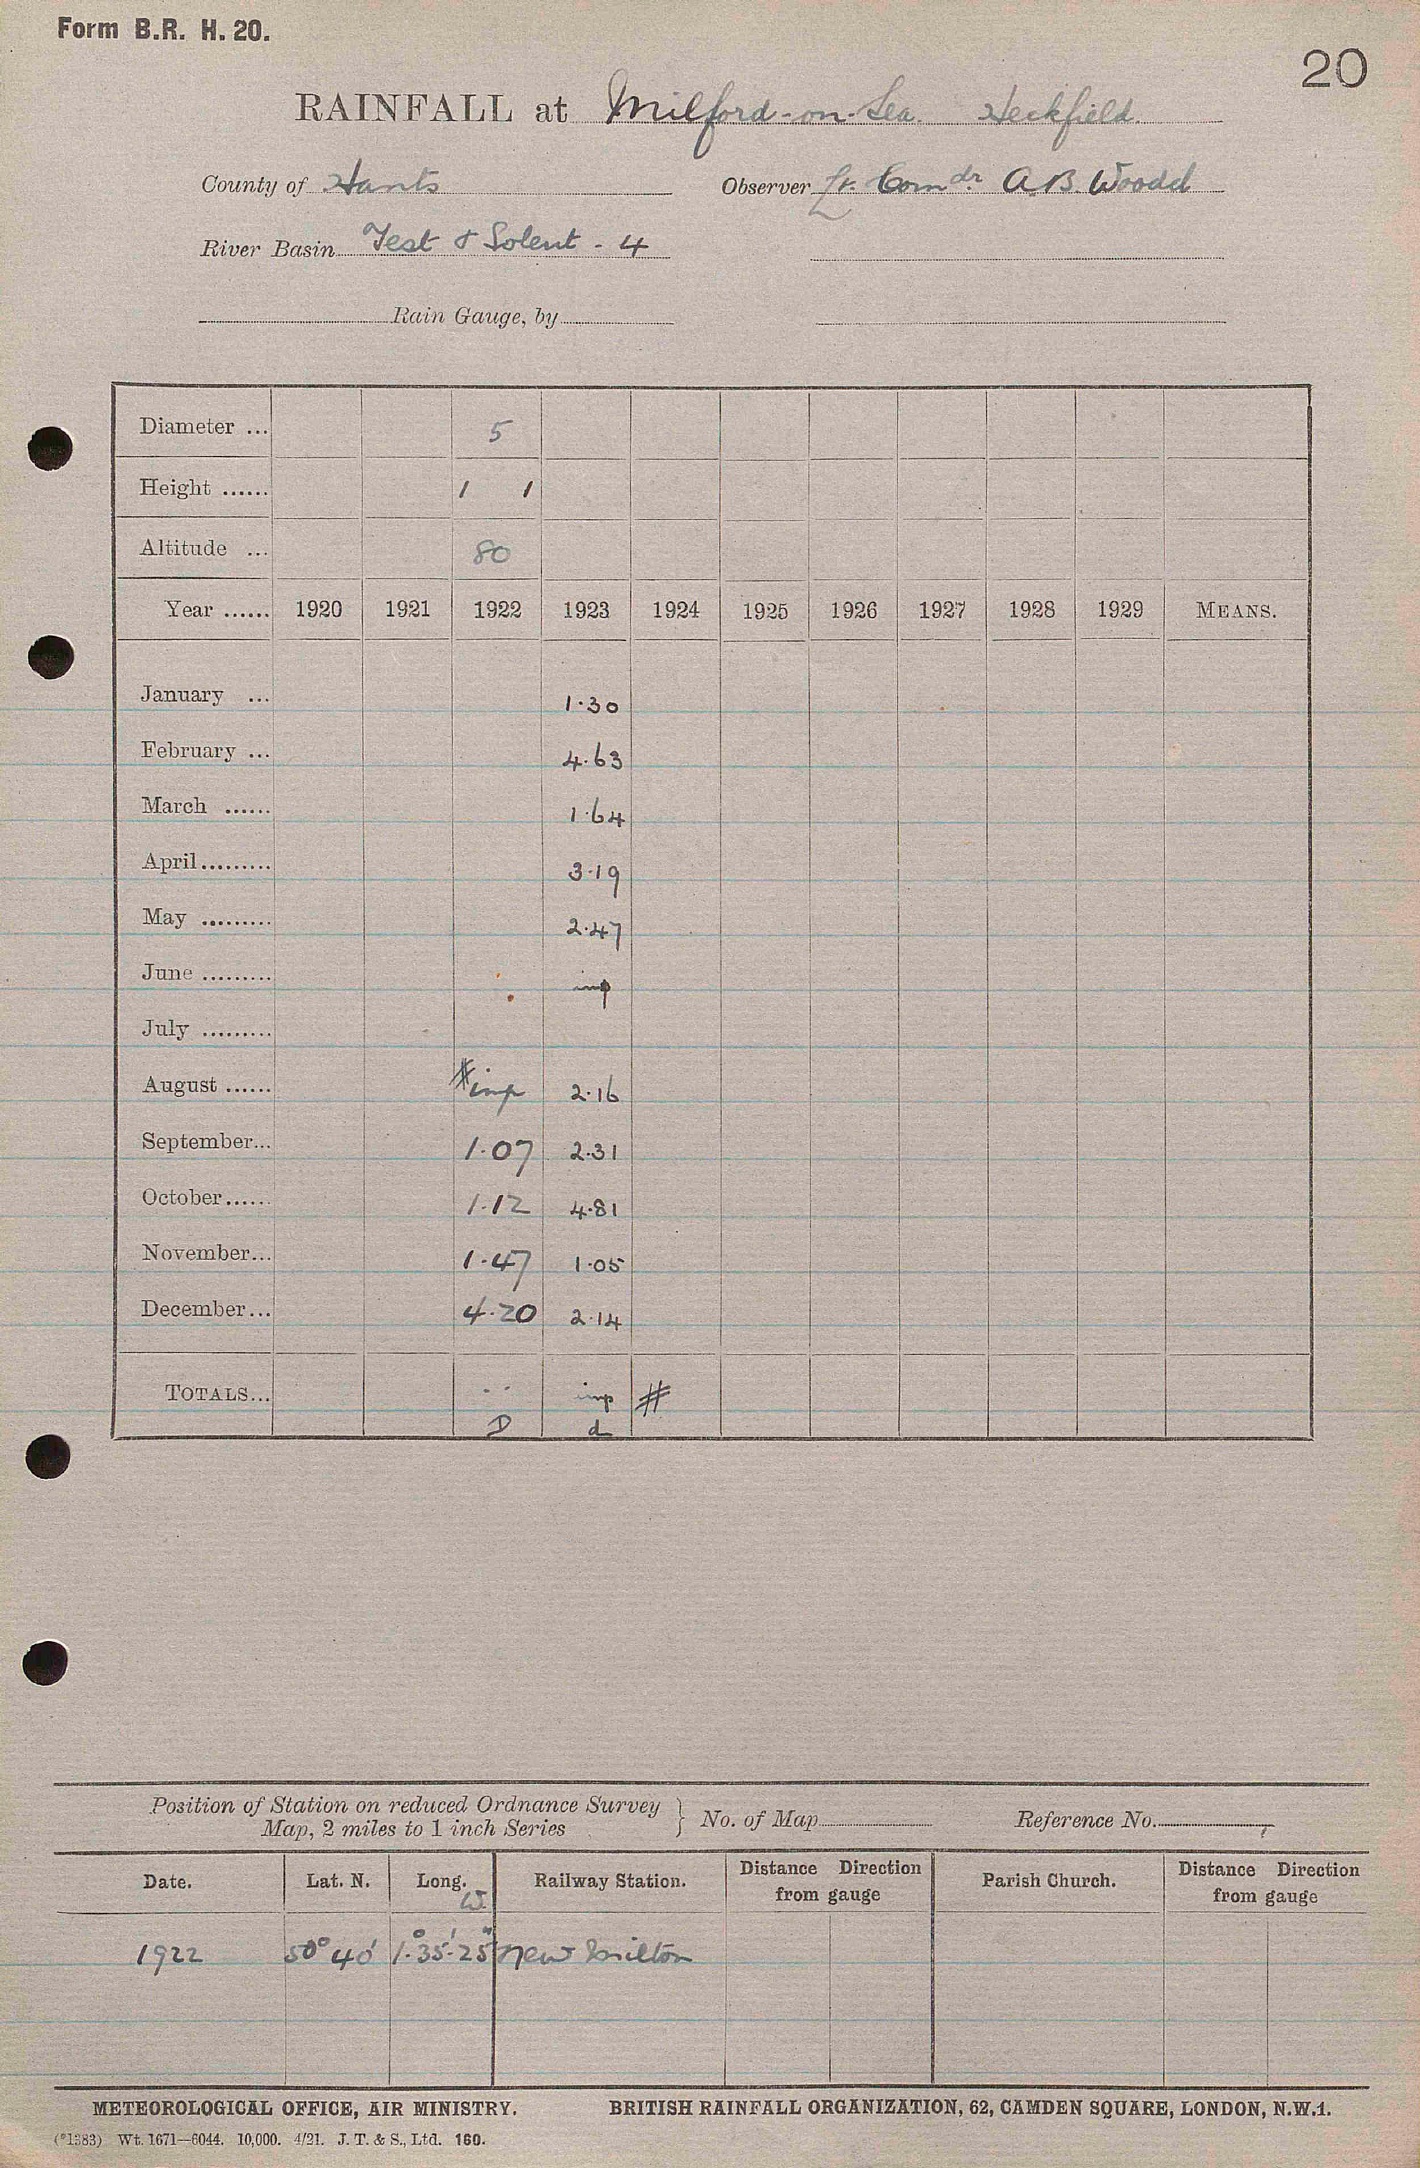 Form B.R. H. 20.
20
RAINFALL at Milford-on-Sea. Heckfield.
County of Hants Observer Lt. Comdr. A.B. Woodd
River Basin Test & Solent - 4
Rain Gauge, by
Diameter ... 5
Height ...... 1 1
Altitude ... 80
Year ...... 1920 1921 1922 1923 1924 1925 1926 1927 1928 1929 MEANS.
January ... 1.30
February ... 4.63
March ...... 1.64
April......... 3.19
May ......... 2.47
June ......... imp
July .........
August ...... # imp 2.16
September... 1.07 2.31
October...... 1.12 4.81
November... 1.47 1.05
December... 4.20 2.14
TOTALS... .. imp #
D d
Position of Station on reduced Ordnance Survey
Map, 2 miles to 1 inch Series } No. of Map Reference No.
Date. Lat. N. Long. W Railway Station. Distance Direction from gauge Parish Church. Distance Direction from gauge
1922 50° 40' 1°.35'.25" New Milton
METEOROLOGICAL OFFICE, AIR MINISTRY. BRITISH RAINFALL ORGANIZATION, 62, CAMDEN SQUARE, LONDON, N.W.1.
(*1383) Wt. 1671—6044. 10,000. 4/21. J. T. & S., Ltd. 160.